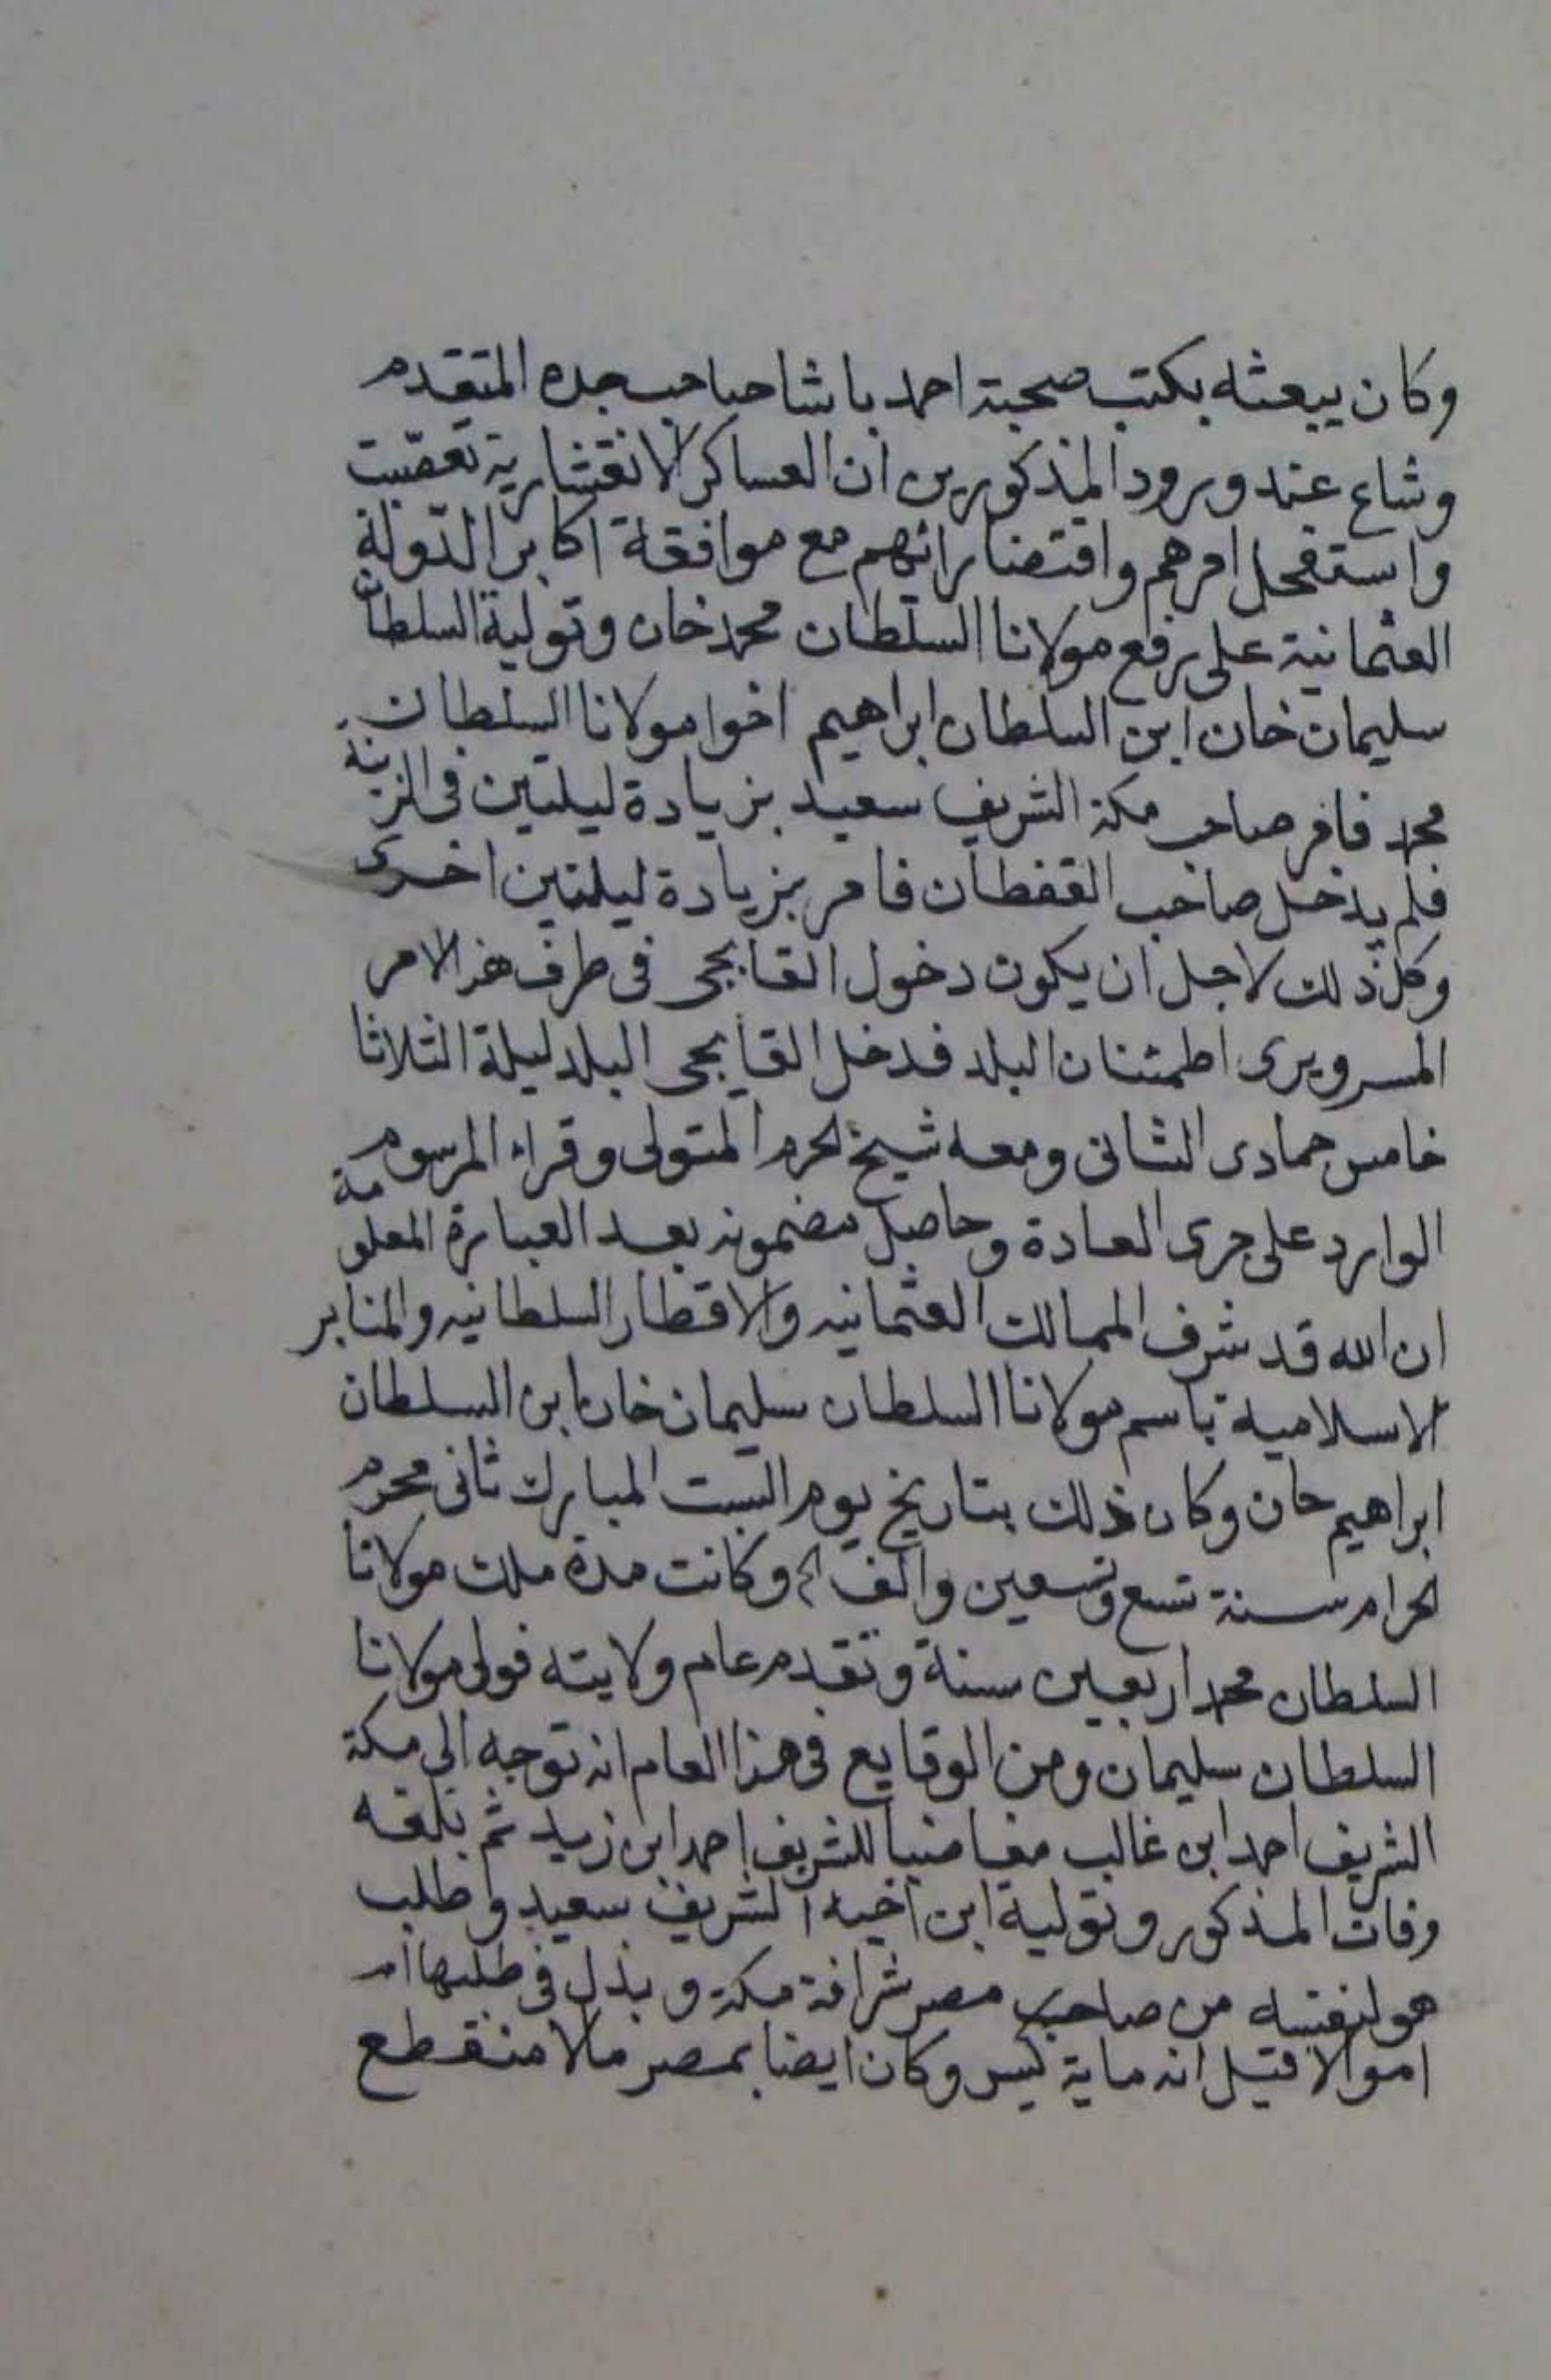 وكان يبعثه بكتب صحبة احمد باشا صاحب جده المتقدم
وشاع عند ورود المذكورين ان العساكر الانقشارية تعصبت
واستفحل امرهم واقتضا رائهم مع موافقة اكابر الدولة
العثمانية على رفع مولانا السلطان محمد خان وتولية السلطان
سليمان خان ابن السلطان ابراهيم اخوا مولانا السلطان
محمد فامر صاحب مكة الشريف سعيد بزيادة ليلتين في الزينة
فلم يدخل صاحب القفطان فامر بزيادة ليلتين اخرى
وكل ذلك لاجل ان يكون دخول القابجى فى طرف هذا الامر
المسرو يرى اطمئنان البلد فدخل القابجى البلد ليلة الثلاثا
خامس جمادى الثانى ومعه شيخ الحرم المتولى وقراء المرسوم
الوارد على جرى العادة وحاصل مضمونه بعد العبارة المعلومة
ان الله قد شرف الممالك العثمانيه والاقطار السلطانيه والمنابر
الاسلامية باسم مولانا السلطان سليمان خان ابن السلطان
ابراهيم خان وكان ذلك بتاريخ يوم السبت المبارك ثانى محرم
الحرام سنة تسع وتسعين والف وكانت مدة ملك مولانا
السلطان محمد اربعين سنة وتقدم عام ولايته فولى مولانا
السلطان سليمان ومن الوقايع فى هذا العام انه توجه الى مكة
الشريف احمد ابن غالب مغاضبا للشريف احمد ابن زيد ثم بلغه
وفات المذكور وتولية ابن اخيه الشريف سعيد وطلب
هو لنفسه من صاحب مصر شرافة مكة وبذل في طلبها
اموالا قيل انه ماية كيس وكان ايضا بمصر مالا منقطع